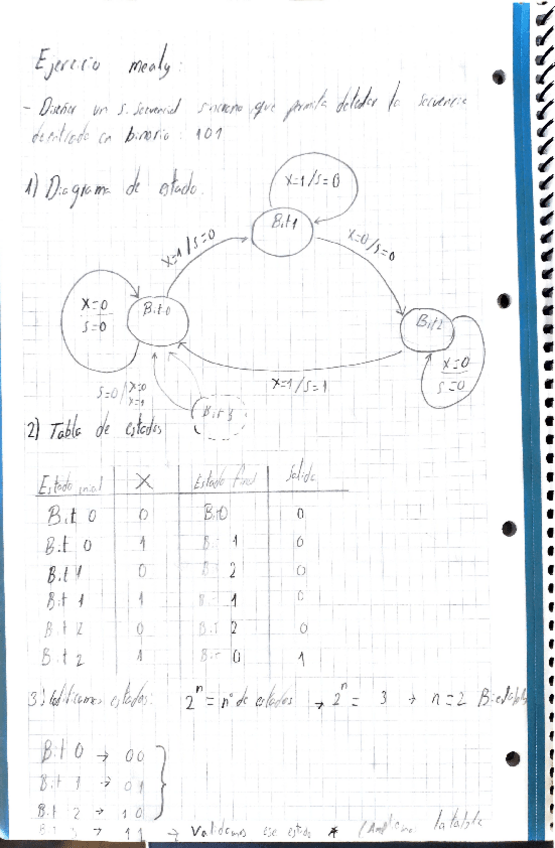 Ejercicio mealy:
- Diseñar un s. secuencial síncrono que permita detectar la secuencia
de entrada en binario: 101
1) Diagrama de estado.
X=1/S=0
Bit1
X=1/S=0
X=0/S=0
X=0
S=0
Bit0
Bit2
X=0
S=0
X=1/S=1
S=0/X=0
X=1
Bit3
2) Tabla de estados
Estado inicial X Estado final Salida
Bit 0 0 Bit0 0
Bit 0 1 Bit 1 0
Bit 1 0 Bit 2 0
Bit 1 1 Bit 1 0
Bit 2 0 Bit 2 0
Bit 2 1 Bit 0 1
3) Codificamos estados: 2^n = nº de estados → 2^n = 3 → n=2 Biestables
Bit 0 → 00
Bit 1 → 01
Bit 2 → 10
Bit 3 → 11 → Validamos ese estado * (Ampliamos la tabla